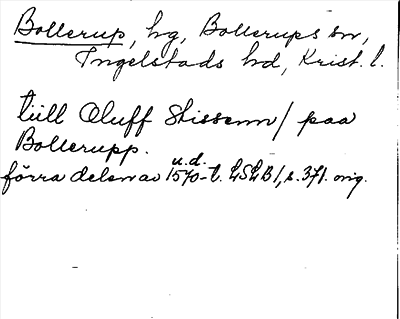 Bollerup, hg, Bollerups sn,
Ingelstads hd, Krist. l.
tiill Oluff Stissenn / paa
Bollerupp.
u.d.
förra delen av 1570-t. LSLB 1, s. 371. orig.